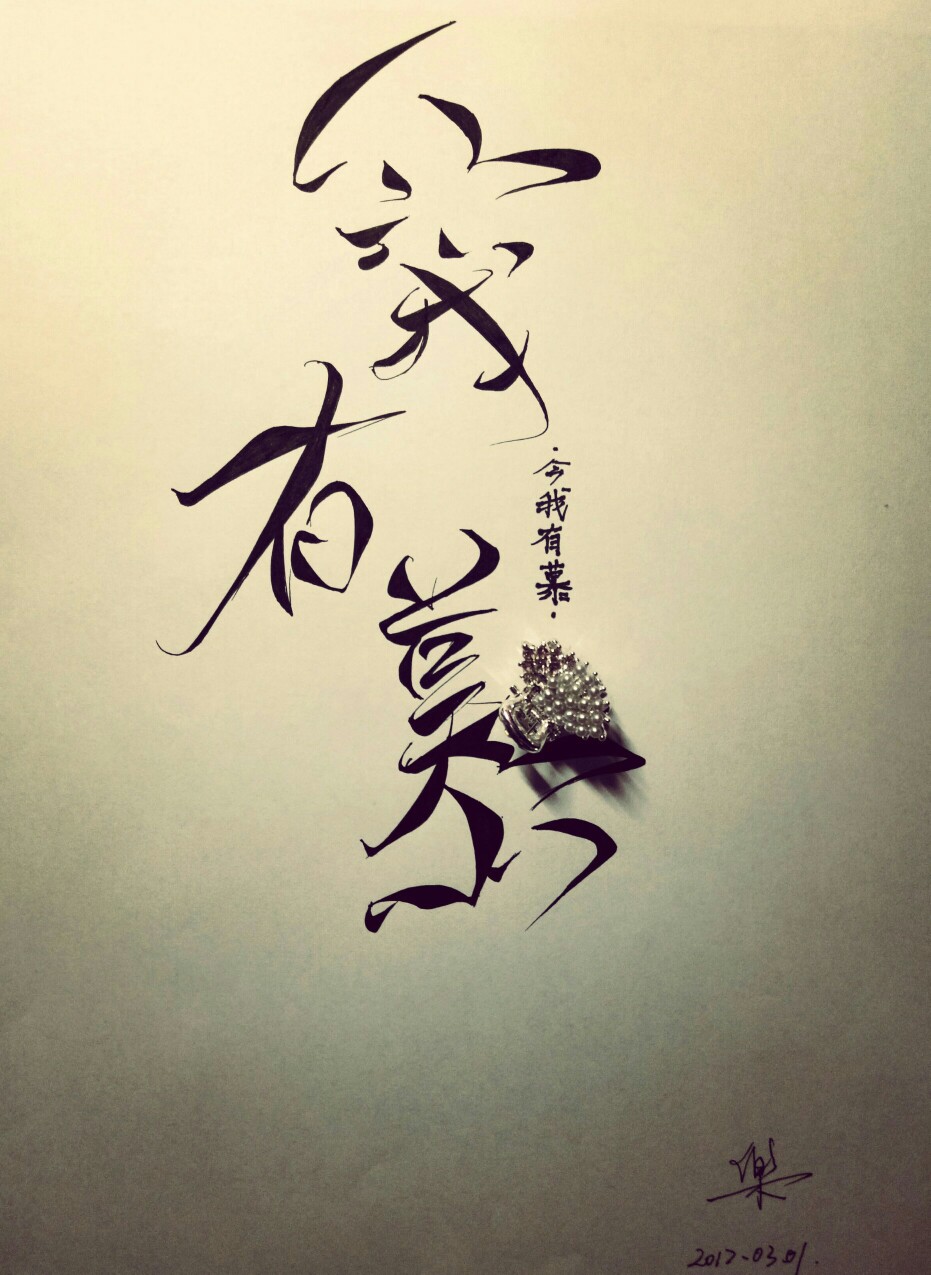 今我有慕
·今我有慕·
樂
2017.03.01.